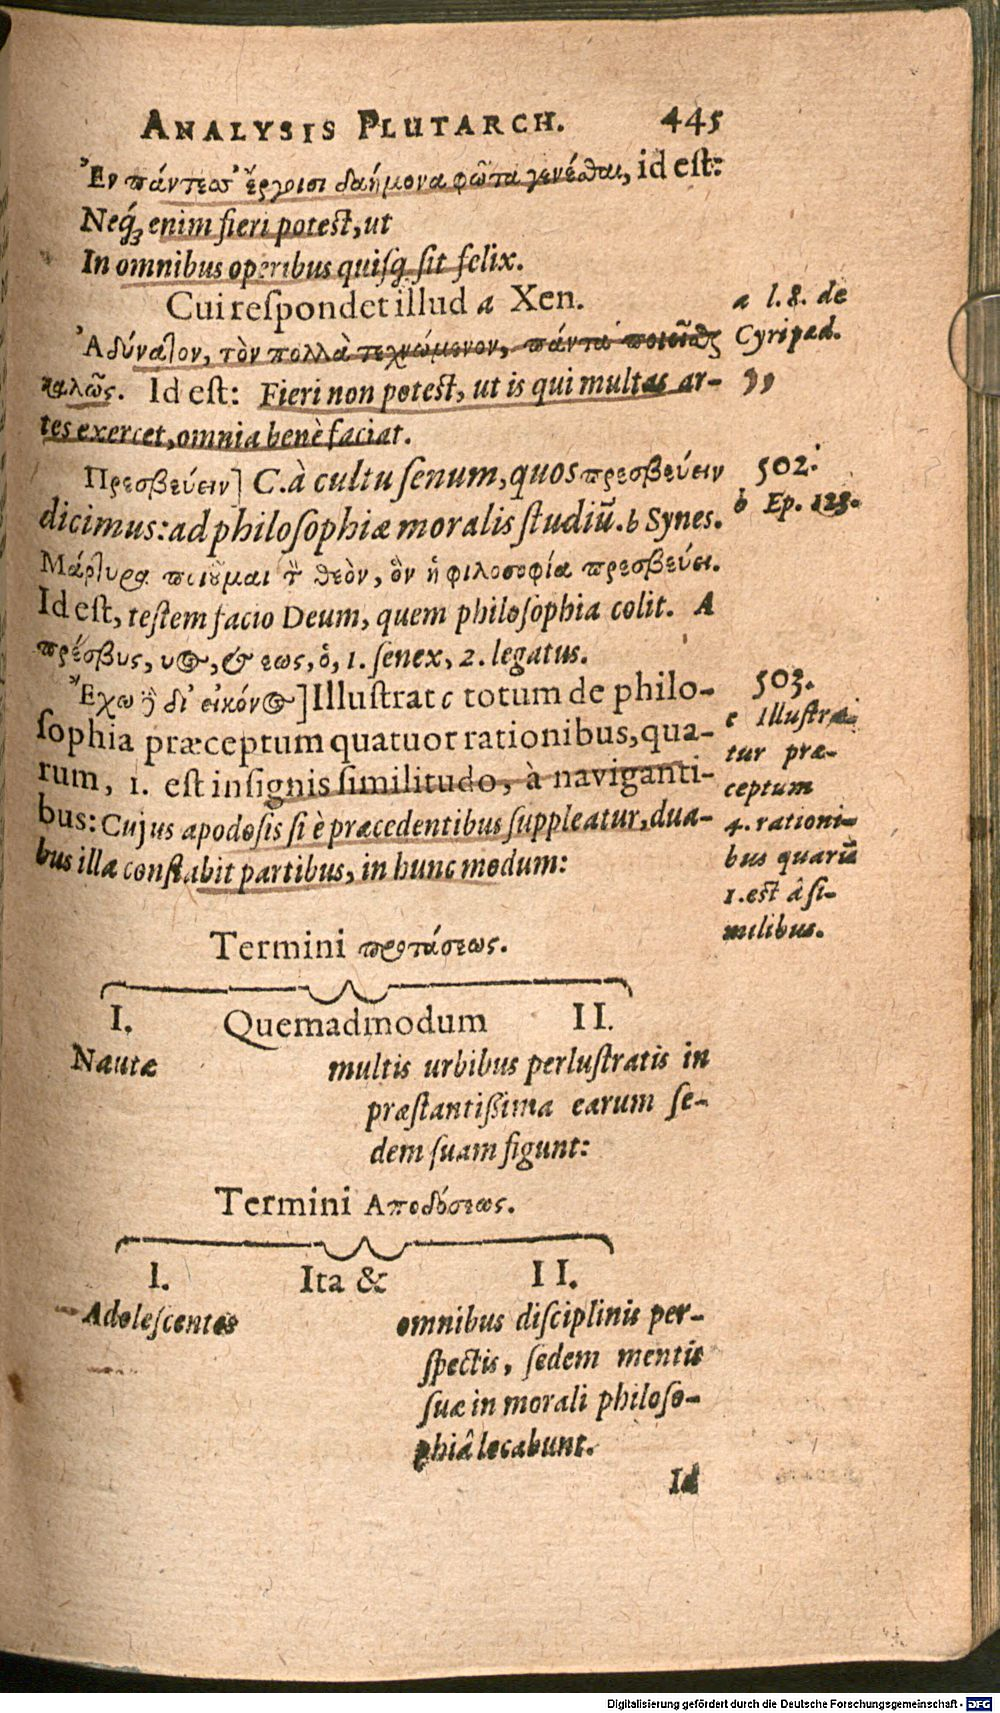 ANALYSIS PLUTARCH. 445
Ἐν πάντεσσ' ἔργοισι δαήμονα φῶτα γενέσθαι, id est:
Neq́; enim fieri poteſt, ut
In omnibus operibus quiſq; ſit felix.
Cui reſpondet illud a Xen.
a l. 8. de
Ἀδύνατον, τὸν πολλὰ τεχνώμενον, πάντα ποιεῖσθαι
Cyripæd.
καλῶς. Id eſt: Fieri non poteſt, ut is qui multas ar-
„
tes exercet, omnia benè faciat.
Πρεσβεύειν] C. à cultu ſenum, quos πρεσβεύειν
502.
dicimus: ad philoſophiæ moralis ſtudiũ. b Synes.
b Ep. 123.
Μάρτυρα ποιοῦμαι τ̀ θεὸν, ὃν ἡ φιλοσοφία πρεσβεύει.
Id eſt, teſtem facio Deum, quem philoſophia colit. A
πρέσβυς, υος, & εως, ὁ, 1. ſenex, 2. legatus.
Ἔχω δὲ δι' εἰκόνος] Illuſtrat c totum de philo-
503.
ſophia præceptum quatuor rationibus, qua-
c Illuſtra-
rum, 1. eſt inſignis ſimilitudo, à naviganti-
tur præ-
bus: Cujus apodoſis ſi è præcedentibus ſuppleatur, dua-
ceptum
4. rationi-
bus illa conſtabit partibus, in hunc modum:
bus quarũ
1. eſt â ſi-
milibus.
Termini προτάσεως.
I. Quemadmodum II.
Nautæ multis urbibus perluſtratis in
præſtantißima earum ſe-
dem ſuam figunt:
Termini Αποδόσεως.
I. Ita & II.
Adoleſcentes omnibus diſciplinis per-
ſpectis, ſedem mentis
ſuæ in morali philoſo-
phiâ locabunt.
Id
Digitalisierung gefördert durch die Deutsche Forschungsgemeinschaft - DFG